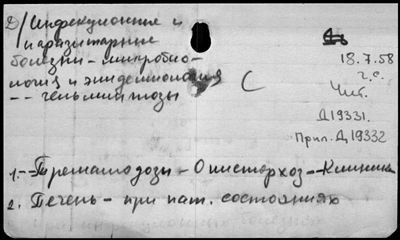 Д/ Инфекционные и
паразитарные
болезни - микробио-
логия и эпидемиология
-- гельминтозы
С
18.7.58
г.с.
Чит.
Д19331.
Прил. Д19332
1.- Трематодозы - Описторхоз - Клиника
2. Печень - при пат. состояниях